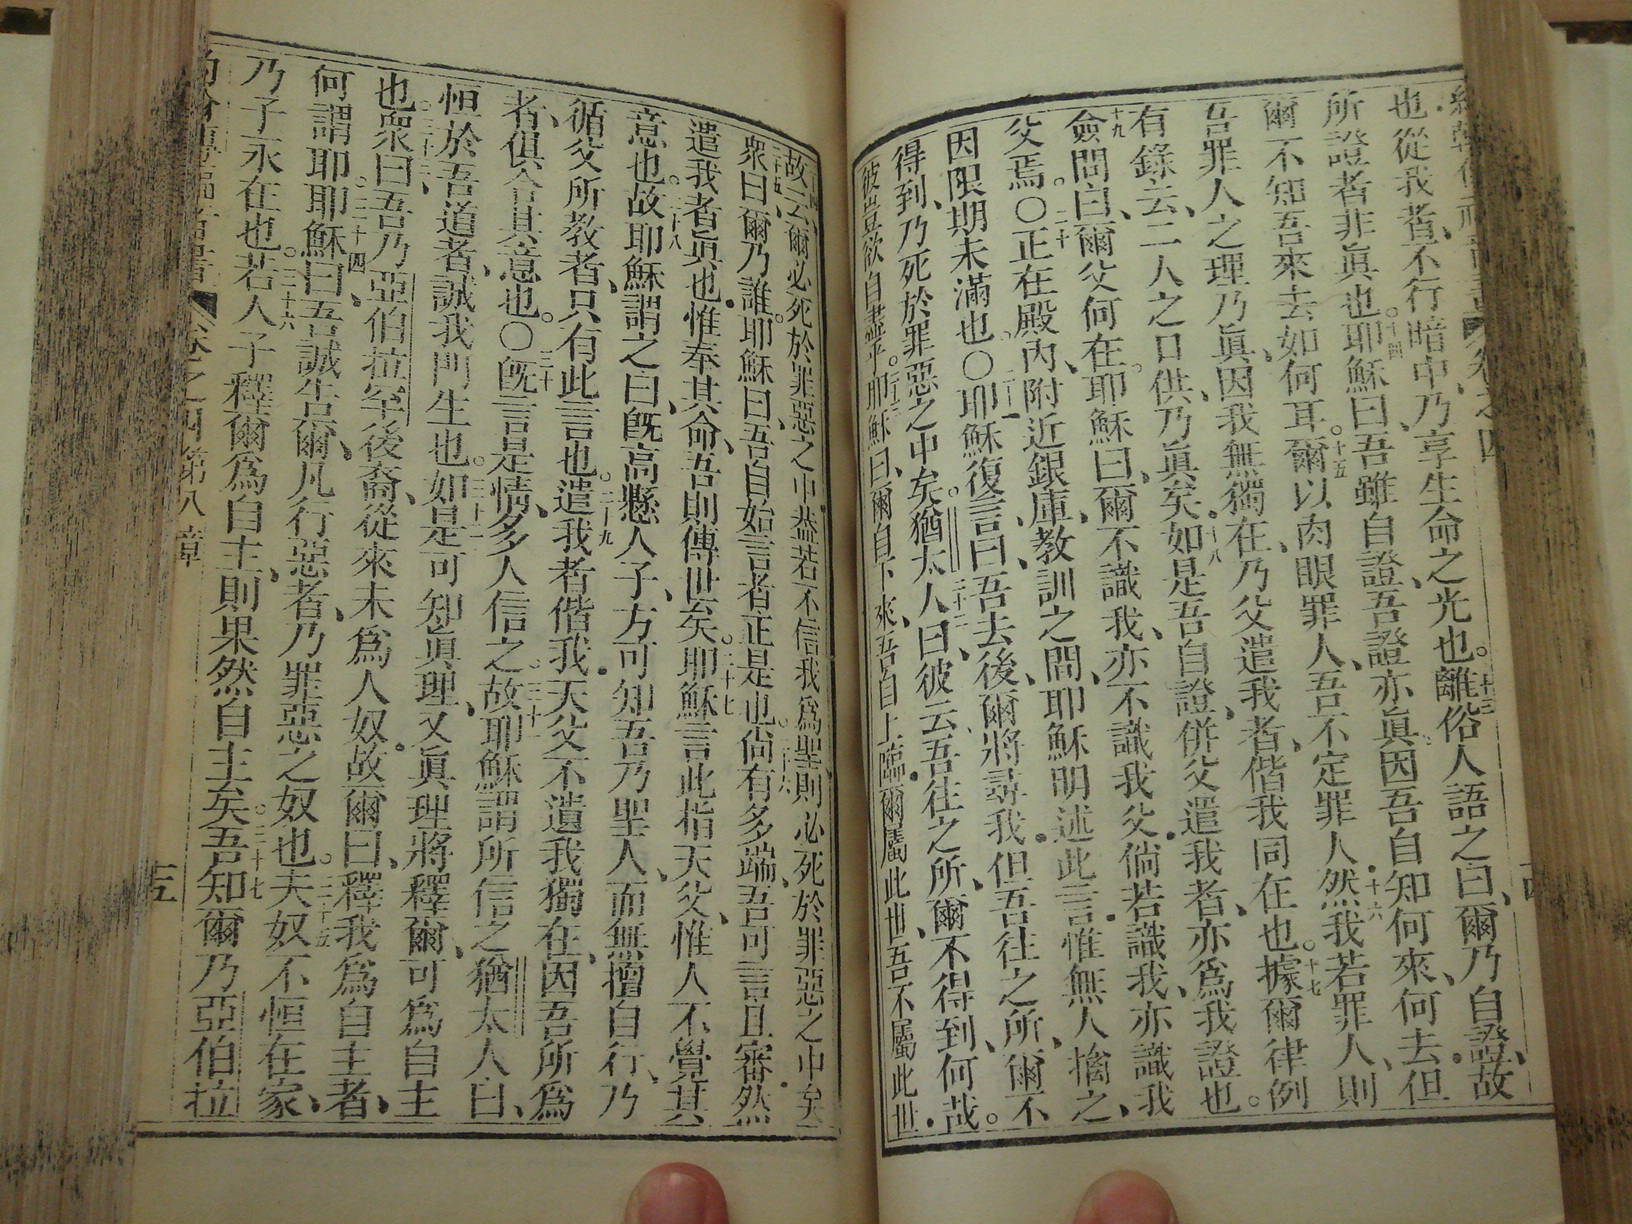 也從我者、不行暗中、乃享生命之光也。十三離俗人語之曰、爾乃自證、故
所證者非眞也。十四耶穌曰、吾雖自證、吾證亦眞、因吾自知何來、何去、但
爾不知吾來去如何耳。十五爾以肉眼罪人、吾不定罪人。十六然我若罪人、則
吾罪人之理乃眞、因我無獨在、乃父遣我者、偕我同在也。十七據爾律例
有錄云、二人之口供、乃眞矣。十八如是吾自證、併父遣我者、亦爲我證也。
十九僉問曰、爾父何在。耶穌曰、爾不識我、亦不識我父。倘若識我、亦識我
父焉。〇二十正在殿內、附近銀庫、教訓之間、耶穌明述此言。惟無人擒之、
因限期未滿也。〇二十一耶穌復言曰、吾去後、爾將尋我。但吾往之所、爾不
得到、乃死於罪惡之中矣。二十二猶太人曰、彼云、吾往之所、爾不得到、何哉。
彼豈欲自盡乎。二十三耶穌曰、爾自下來、吾自上臨。爾屬此世、吾不屬此世。
故云、爾必死於罪惡之中。蓋若不信我爲聖、則必死於罪惡之中矣。
二十五衆曰、爾乃誰。耶穌曰、吾自始言者正是也。二十六尙有多端、吾可言且審。然
遣我者眞也。惟奉其命、吾則傳世矣。二十七耶穌言此指天父、惟人不覺其
意也。二十八故耶穌謂之曰、旣高懸人子、方可知吾乃聖人、而無擅自行、乃
循父所教者、只有此言也。二十九遣我者偕我。天父不遺我獨在、因吾所爲
者、俱合其意也。〇三十旣言是情、多人信之。三十一故耶穌謂所信之猶太人曰、
恒於吾道者、誠我門生也。三十二如是可知眞理、又眞理將釋爾、可爲自主
也。三十三衆曰、吾乃亞伯拉罕後裔、從來未爲人奴。故爾曰、釋我爲自主者、
何謂耶。三十四耶穌曰、吾誠告爾、凡行惡者、乃罪惡之奴也。三十五夫奴不恒在家、
乃子永在也。三十六若人子釋爾爲自主、則果然自主矣。三十七吾知爾乃亞伯拉
卷之四 第八章